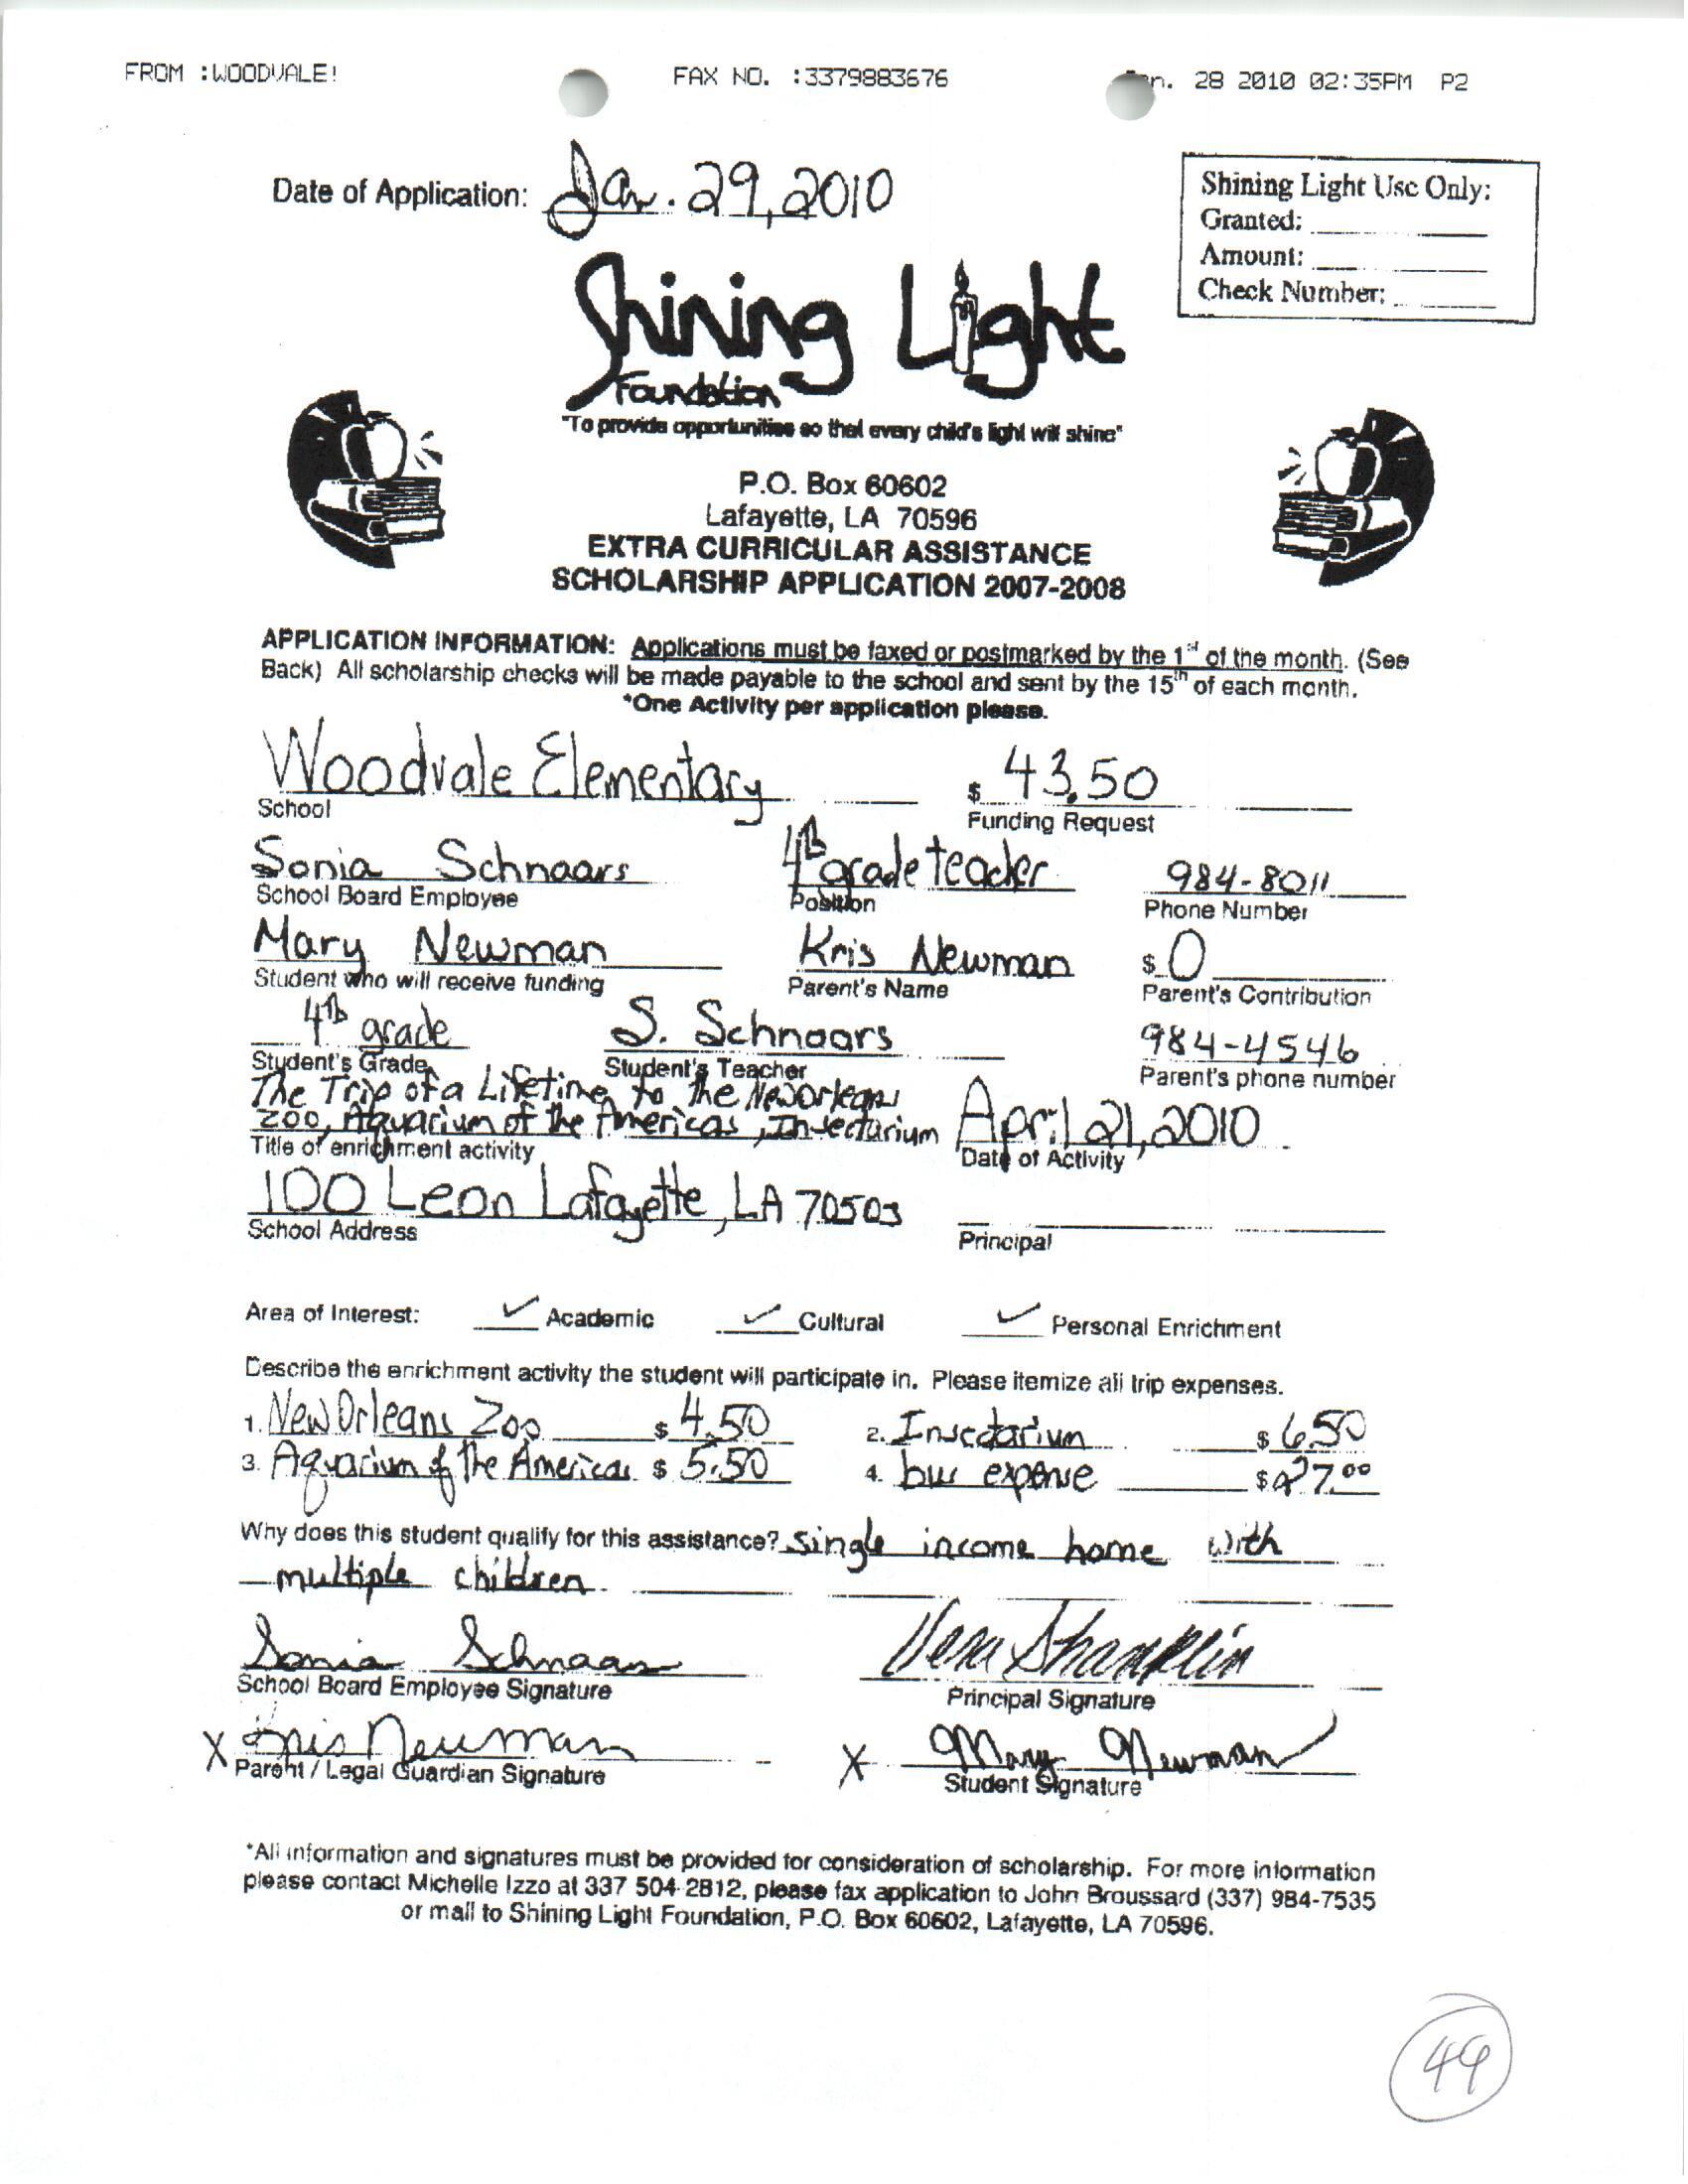 FROM :WOODVALE! FAX NO. :3379883676 Jan. 28 2010 02:35PM P2
Date of Application: Jan. 29, 2010
Shining Light Use Only:
Granted:
Amount:
Check Number:
Shining Light
Foundation
"To provide opportunities so that every child's light will shine"
P.O. Box 60602
Lafayette, LA 70596
EXTRA CURRICULAR ASSISTANCE
SCHOLARSHIP APPLICATION 2007-2008
APPLICATION INFORMATION: Applications must be faxed or postmarked by the 1st of the month. (See
Back) All scholarship checks will be made payable to the school and sent by the 15th of each month.
*One Activity per application please.
Woodvale Elementary $ 43.50
School Funding Request
Sonia Schnaars 4th grade teacher 984-8011
School Board Employee Position Phone Number
Mary Newman Kris Newman $ 0
Student who will receive funding Parent's Name Parent's Contribution
4th grade S. Schnaars 984-4546
Student's Grade Student's Teacher Parent's phone number
The Trip of a Lifetime to the New Orleans
Zoo, Aquarium of the Americas, Insectarium April 21, 2010
Title of enrichment activity Date of Activity
100 Leon Lafayette, LA 70503
School Address Principal
Area of Interest: ✓ Academic ✓ Cultural ✓ Personal Enrichment
Describe the enrichment activity the student will participate in. Please itemize all trip expenses.
1. New Orleans Zoo $ 4.50 2. Insectarium $ 6.50
3. Aquarium of the Americas $ 5.50 4. bus expense $ 27.00
Why does this student qualify for this assistance? single income home with
multiple children.
Sonia Schnaars Vera Shanklin
School Board Employee Signature Principal Signature
X Kris Newman X Mary Newman
Parent / Legal Guardian Signature Student Signature
*All information and signatures must be provided for consideration of scholarship. For more information
please contact Michelle Izzo at 337 504-2812, please fax application to John Broussard (337) 984-7535
or mail to Shining Light Foundation, P.O. Box 60602, Lafayette, LA 70596.